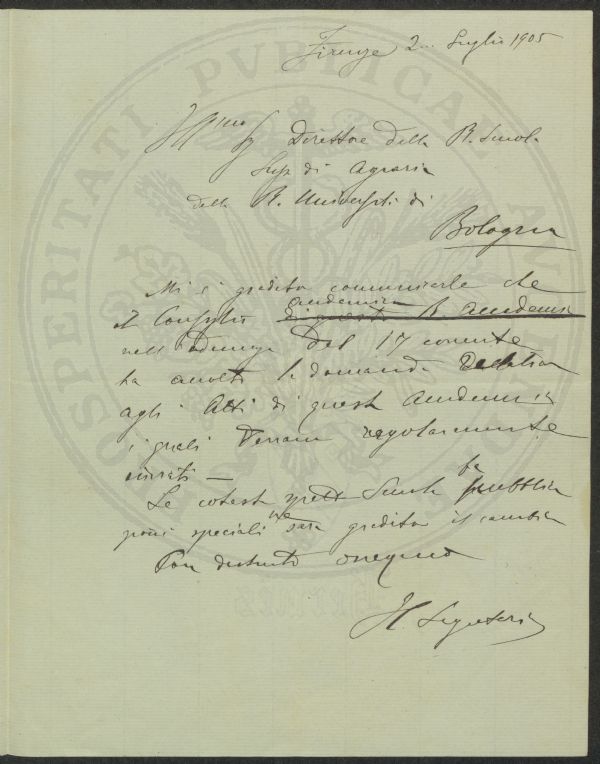 Firenze 2 Luglio 1905
Ill.mo Sig Direttore della R. Scuola
Sup. di Agraria
della R. Università di
Bologna
Mi è gradito comunicarle che
il Consiglio accademico di questa R. Accademia
nell'adunanza del 17 corrente
ha accolto la domanda
agli Atti di questa Accademia
i quali verranno regolarmente
inviati —
Se cotesta spett. Scuola fa pubblica
zioni speciali ne sarà gradito il cambio
Con distinto ossequio
Il Segretario
PROSPERITATI PUBLICAE AUGENDAE